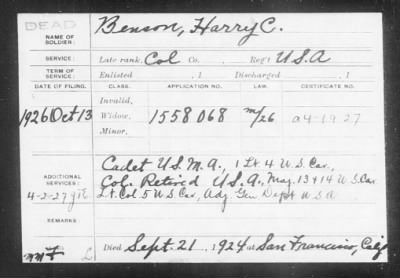 DEAD
NAME OF SOLDIER: Benson, Harry C.
SERVICE: Late rank, Col Co. , Reg't U.S.A
TERM OF SERVICE: Enlisted , 1 Discharged , 1
DATE OF FILING. CLASS. APPLICATION NO. LAW. CERTIFICATE NO.
Invalid,
1926 Oct 13 Widow, 1558 068 m/26 a4-1927
Minor,
ADDITIONAL SERVICES: Cadet U.S.M.A., 1 Lt. 4 U.S. Cav.,
Col. Retired U.S.A., Maj. 13 & 14 U.S. Cav
4-2-27 Lt. Col. 5 U.S. Cav., Adj Gen Dept U S A
REMARKS:
Died Sept. 21, 1924 at San Francisco, Calif